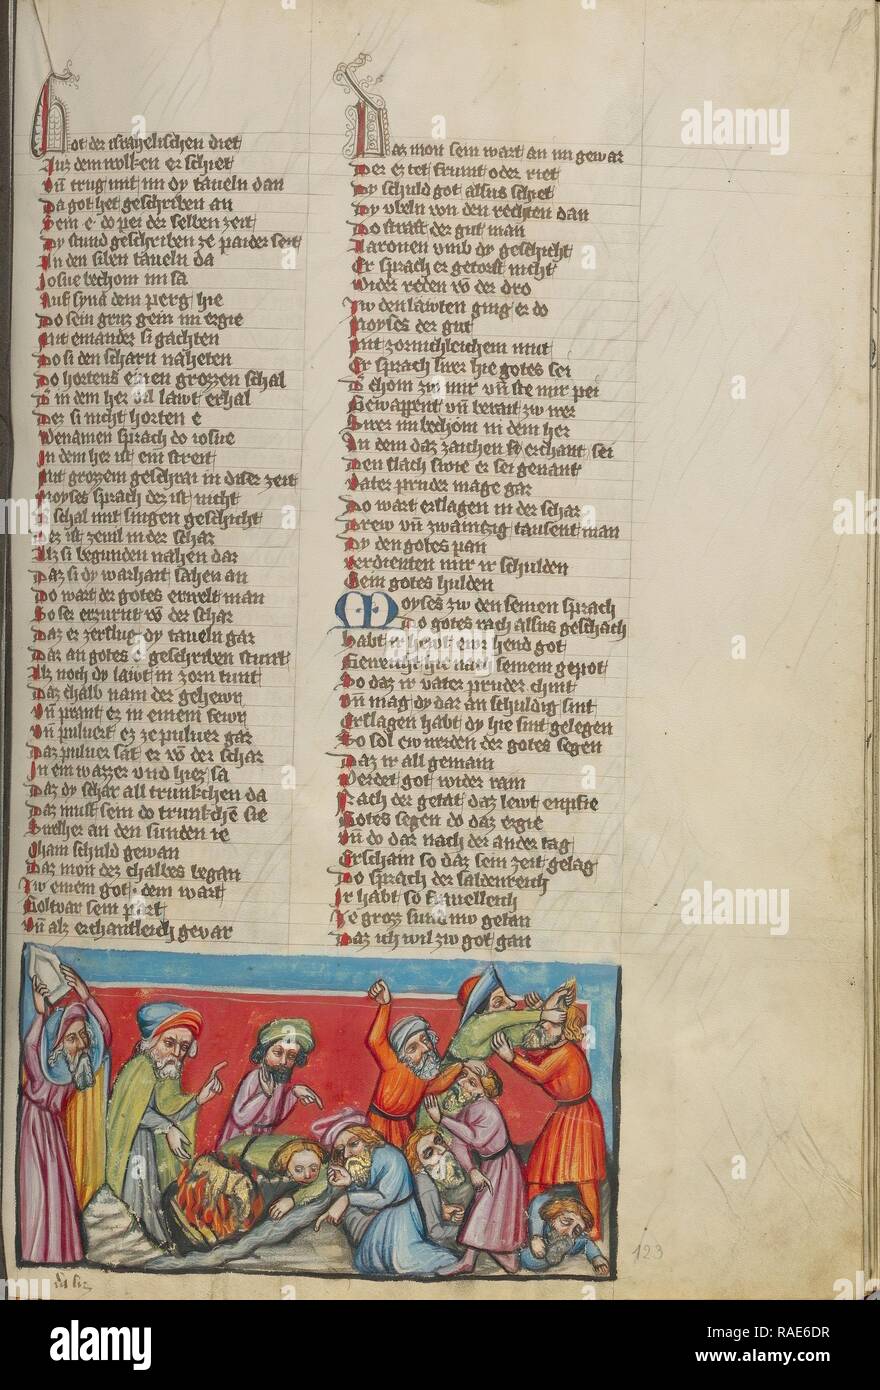 hot der israhelischen diet
Auz dem wolken er schiet
Vñ trug mit im dy taueln dan
Da got het geschriben an
Sem e do pei der selben zeit
Dy stund geschriben ze paider seit
An den siben taueln da
Josue bechom im sa
Auf syna dem perg hie
Do sein gruz gein im ergie
Mit einander si gachten
Do si den scharn nacheten
Do hortens einen grozzen schal
D' in dem her vil lawt erhal
Der si nicht horten e
Wenamen sprach do iosue
In dem her ist ein streit
Mit grozzem geschrai in diser zeit
Moyses sprach der ist nicht
D' schal mit singen geschicht
Der ist zeuil in der schar
Alz si begunden nahen dar
Daz si dy warhait sahen an
Do wart der gotes erwelt man
So ser erzurnt võ der schar
Daz er zerslug dy taueln gar
Dar an gotes e geschriben stunt
Alz noch dy lawt in zorn tunt
Daz chalb nam der gehewr
Vñ prant ez in einem fewr
Vñ puluert ez ze puluer gar
Daz puluer sat er võ der schar
In em wazzer vnd hiez sa
Daz dy schar all trunkchen da
Daz must sein do trunkchē sie
Swelher an den sunden ie
Cham schuld gewan
Daz mon dez chalbes began
Iw einem got dem wart
Goltvar sein part
Vñ alz erchantleich gevar
Daz mon sein wart an im gewar
Der ez tet frumt oder riet
Dy schuld got alsus schiet
Dy vbeln von den rechten dan
Do straft der gut man
Aaronen vmb dy geschicht
Er sprach er getorst nicht
Wider reden võ der dro
Iw den lawten ging er do
Moyses der gut
Mit zornichleichem mut
Er sprach swer hie gotes sei
D' chom zw mir vñ ste mir pei
Gewappent vñ berait zw wer
Swer im bechom in dem her
An dem daz zaichen so erchant sei
Den slach swie er sei genant
Vater pruder mage gar
Do wart erslagen in der schar
Drew vñ zwainczig tausent man
Dy den gotes pan
Verdienten mit ir schulden
Sein gotes hulden
Moyses zw den seinen sprach
Do gotes rach alsus geschach
Habt ir hewt ewr hend got
Geweicht hie nach seinem gepot
So daz ir vater pruder chint
Vñ mag dy dar an schuldig sint
Erslagen habt dy hie sint gelegen
So sol ew werden der gotes segen
Daz ir all gemain
Verdet got wider rain
Nach der getat daz lewt enpfie
Gotes segen do daz ergie
Vñ do dar nach der ander tag
Erscham so daz sein zeit gelag
Do sprach der saldenreich
Ir habt so frauelleich
Je groz sund nw getan
Daz ich wil zw got gan
123
alamy stock photo
RAE6DR
www.alamy.com